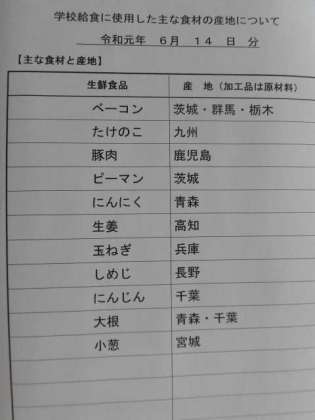 学校給食に使用した主な食材の産地について
令和元年 6月 14 日 分
【主な食材と産地】
生鮮食品 産 地（加工品は原材料）
ベーコン 茨城・群馬・栃木
たけのこ 九州
豚肉 鹿児島
ピーマン 茨城
にんにく 青森
生姜 高知
玉ねぎ 兵庫
しめじ 長野
にんじん 千葉
大根 青森・千葉
小葱 宮城